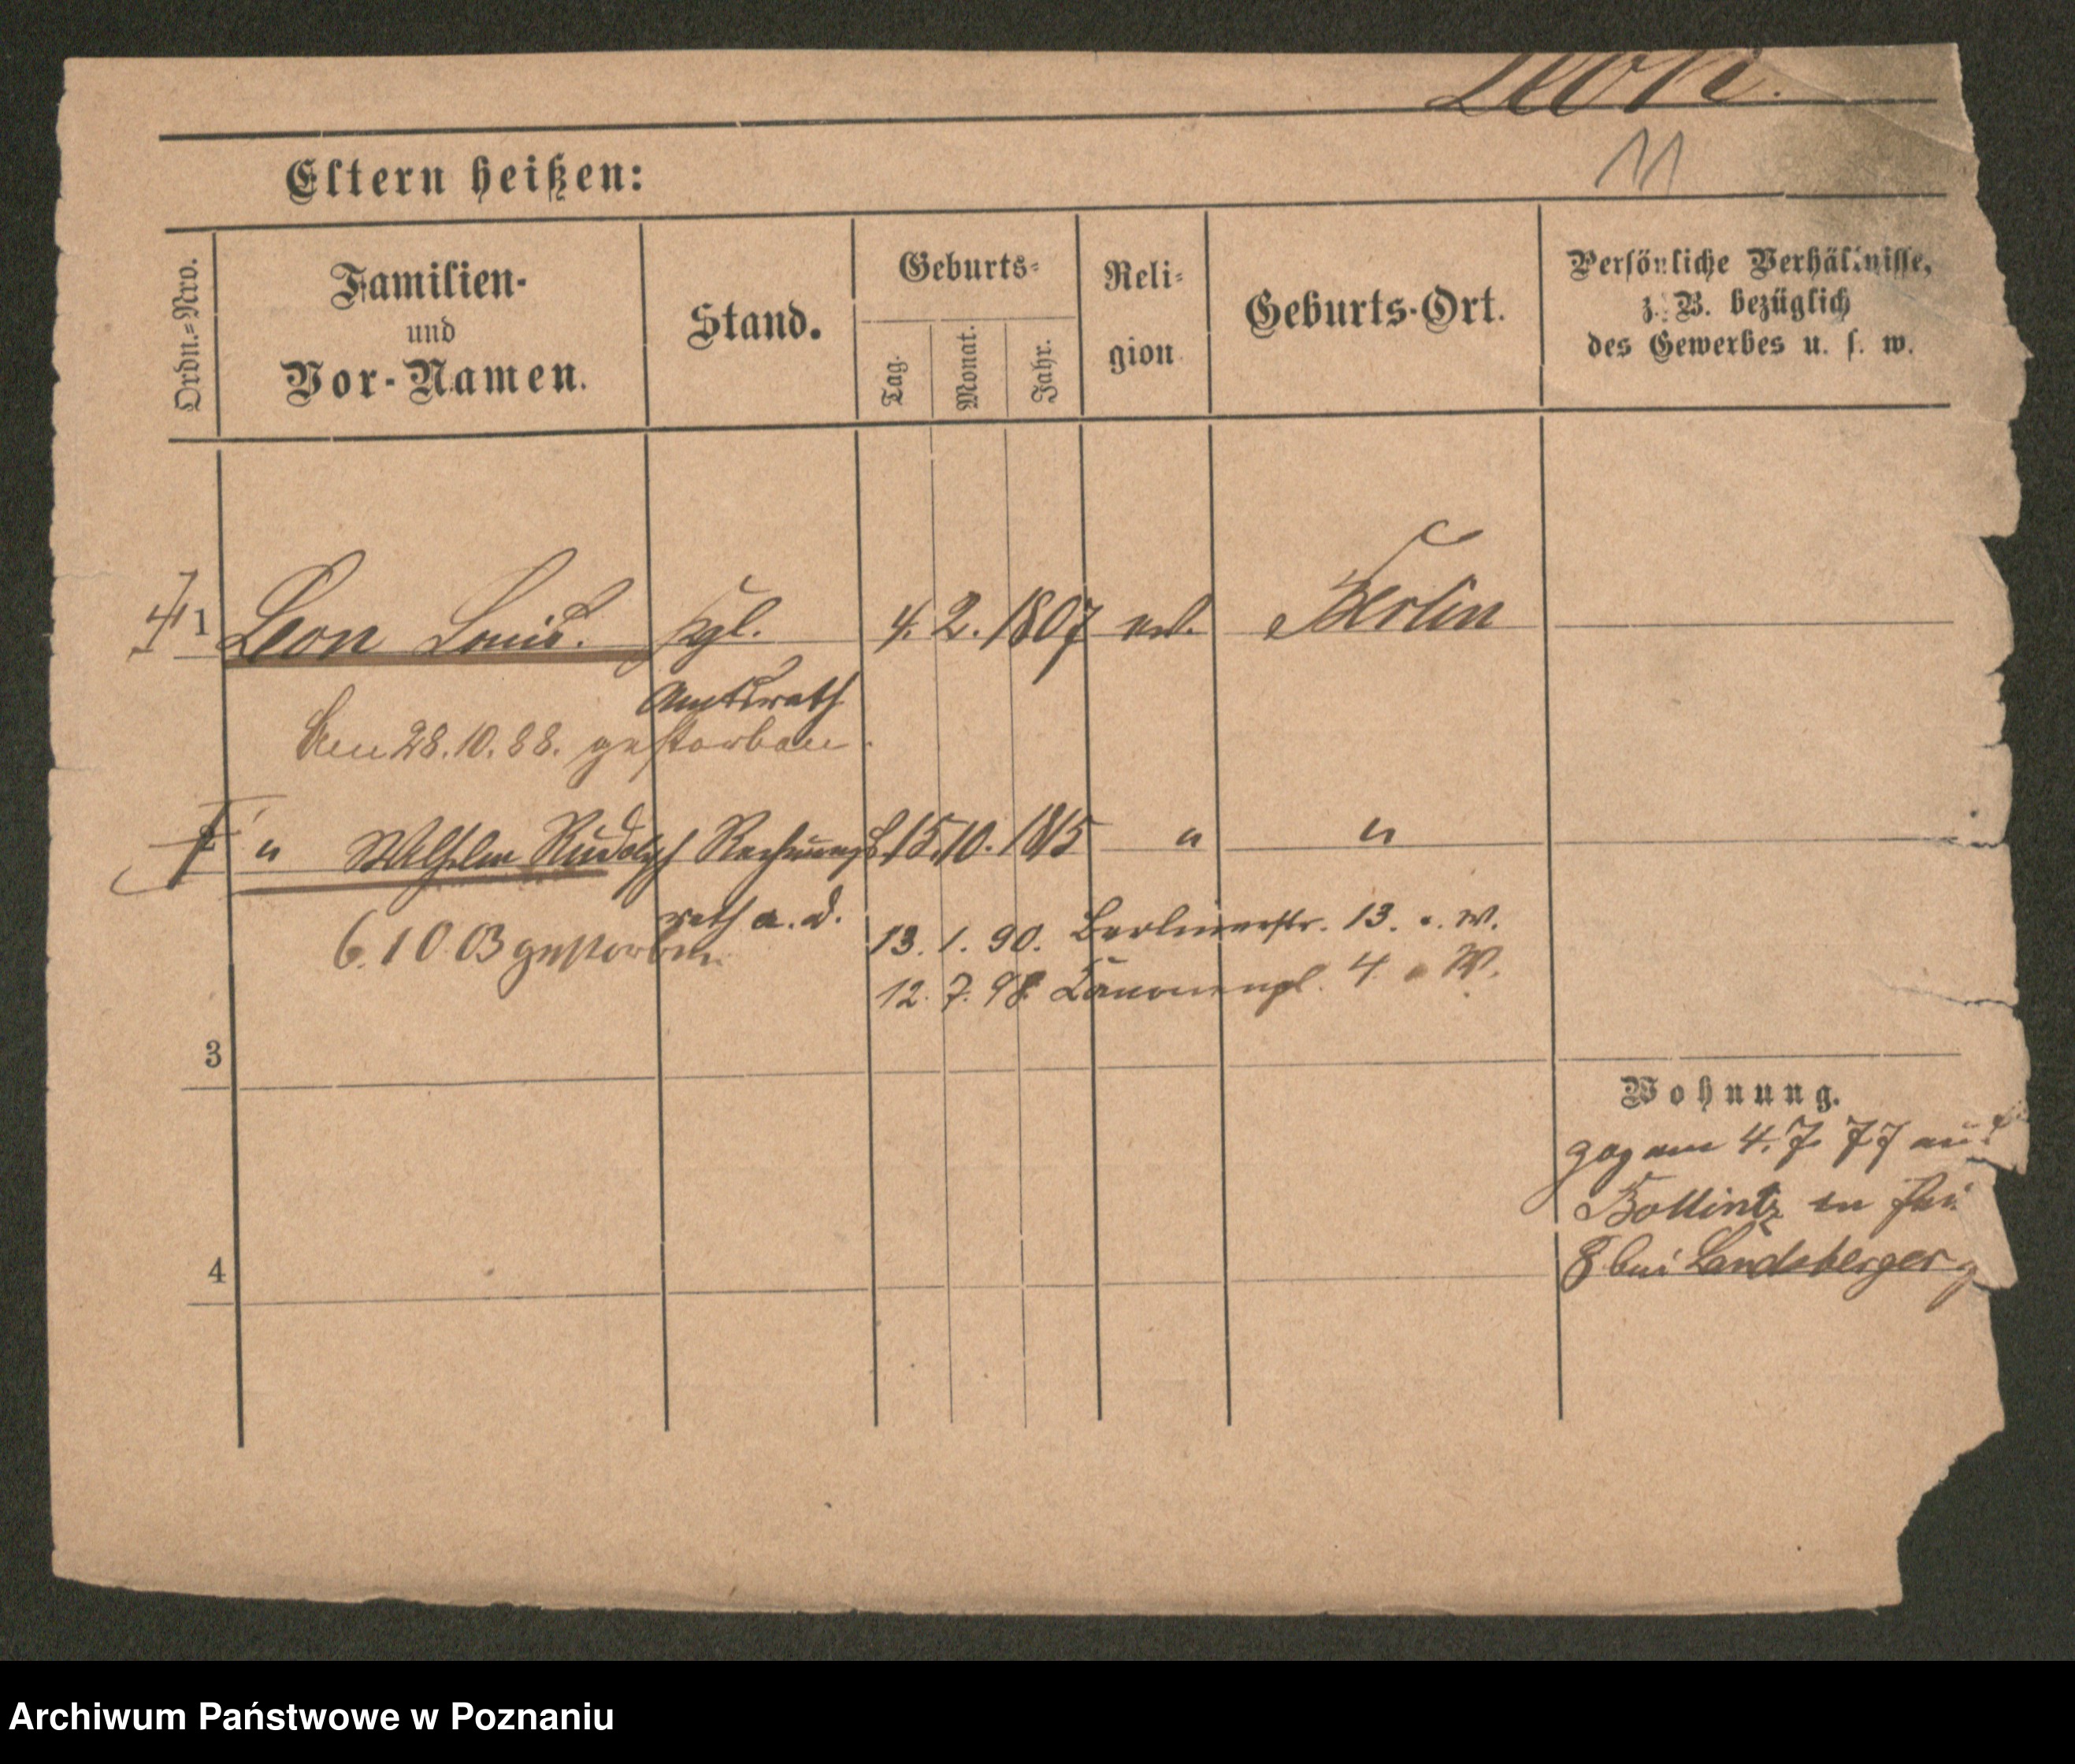 Leon.
11
Eltern heißen:
Ordn.=Nro.
Familien-
und
Vor-Namen.
Stand.
Geburts=
Tag.
Monat.
Jahr.
Reli=
gion
Geburts-Ort.
Persönliche Verhältnisse,
z. B. bezüglich
des Gewerbes u. s. w.
1 Leon Louis. Kgl. 4. 2. 1807 ev. Berlin
Amtsrath
Den 28. 10. 88. gestorben.
" Wilhelm Rudolph Rechnungs 15. 10. 1815 " "
rath a. D.
6. 10 03 gestorben.
13. 1. 90. Berlinerstr. 13. W.
12. 7. 98. Kanonenpl. 4. W.
3
Wohnung.
zog am 4. 7. 77 aus
in
4
8 bei Landsberger